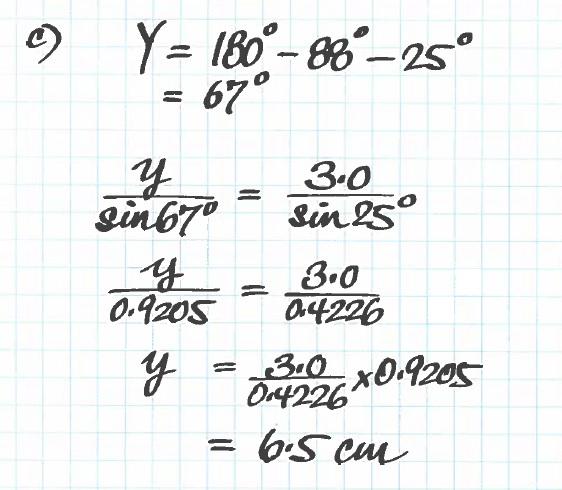 c) Y = 180° - 88° - 25°
= 67°
y/sin 67° = 3.0/sin 25°
y/0.9205 = 3.0/0.4226
y = 3.0/0.4226 × 0.9205
= 6.5 cm